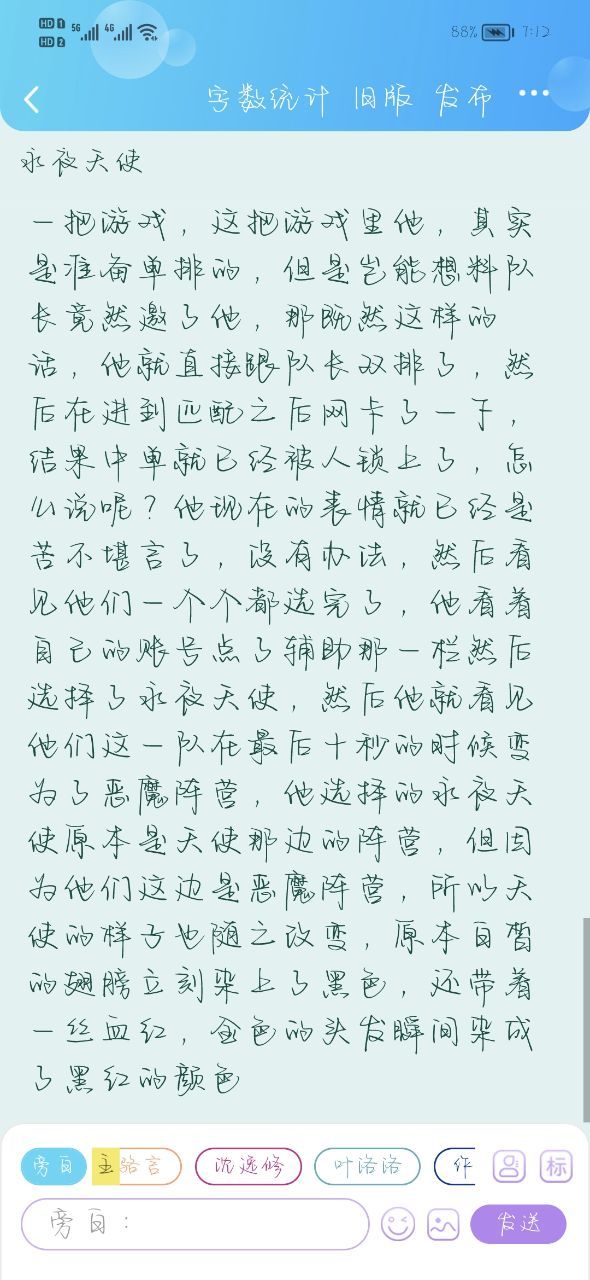 HD 1 5G 4G
HD 2
88% 7:12
字数统计 旧版 发布 ···
永夜天使
一把游戏，这把游戏里他，其实
是准备单排的，但是岂能想料队
长竟然邀了他，那既然这样的
话，他就直接跟队长双排了，然
后在进到匹配之后网卡了一下，
结果中单就已经被人锁上了，怎
么说呢？他现在的表情就已经是
苦不堪言了，没有办法，然后看
见他们一个个都选完了，他看着
自己的账号点了辅助那一栏然后
选择了永夜天使，然后他就看见
他们这一队在最后十秒的时候变
为了恶魔阵营，他选择的永夜天
使原本是天使那边的阵营，但因
为他们这边是恶魔阵营，所以天
使的样子也随之改变，原本白皙
的翅膀立刻染上了黑色，还带着
一丝血红，金色的头发瞬间染成
了黑红的颜色
旁白 主 骆言 沈逸修 叶洛洛 作 标
旁白： 发送